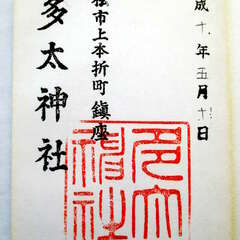 成十年五月十日
松市上本折町鎮座
多太神社
多太神社